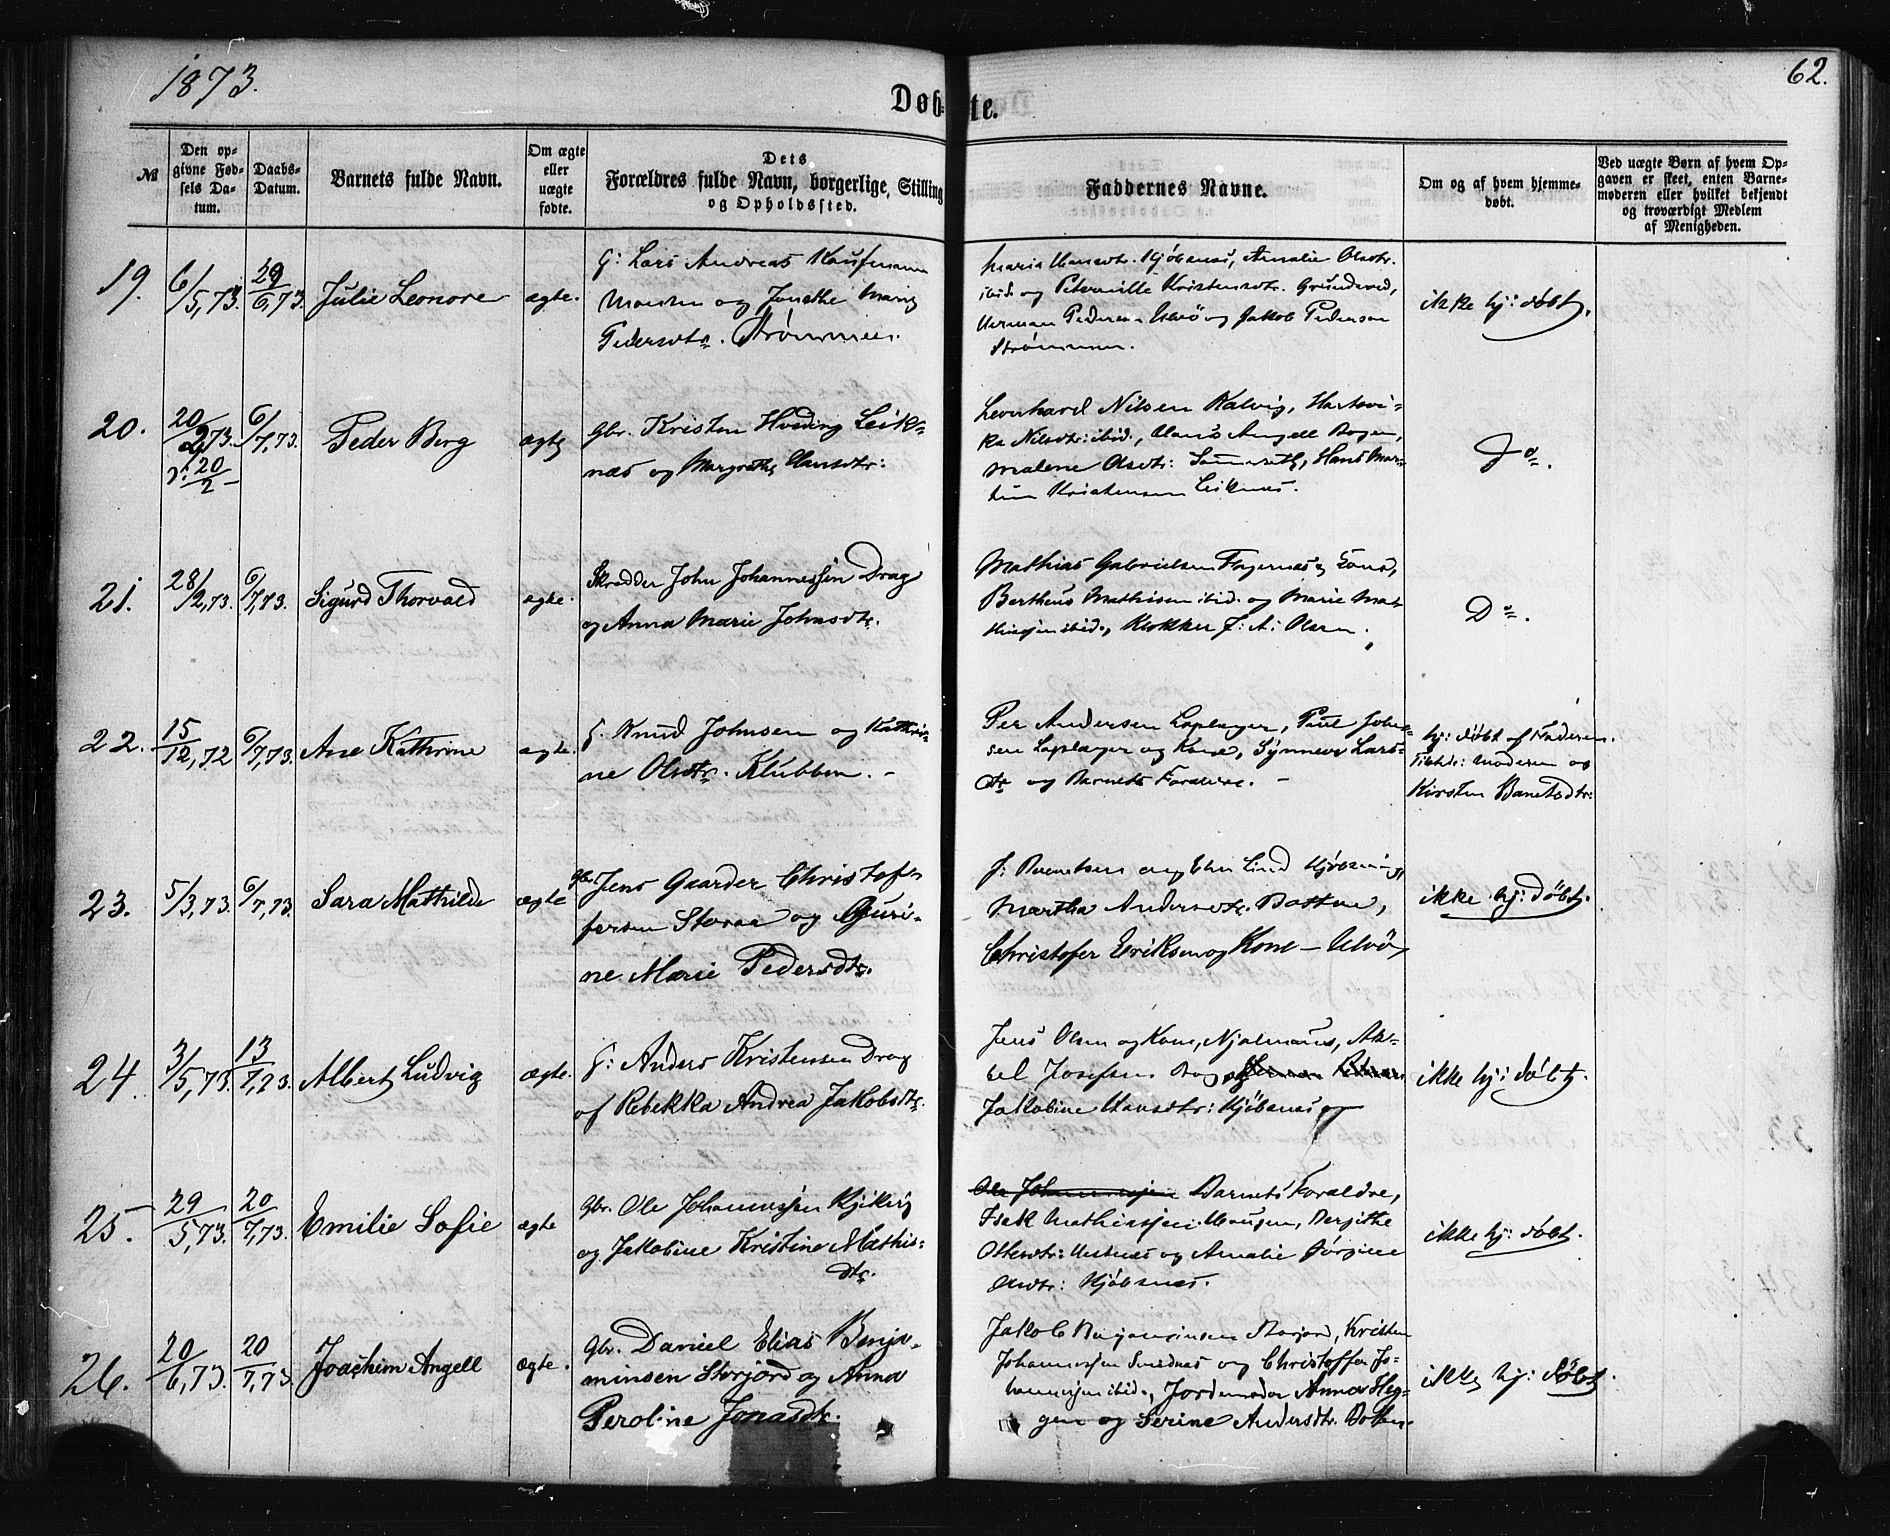 1873.
62.
Døbte.
№
Den opgivne Fødsels Datum.
Daabs-Datum.
Barnets fulde Navn.
Om ægte eller uægte fødte.
Dets Forældres fulde Navn, borgerlige Stilling og Opholdssted.
Faddernes Navne.
Om og af hvem hjemmedøbt.
Ved uægte Børn af hvem Opgaven er skeet, enten Barnemøderen eller hvilket bekjendt og troværdigt Medlem af Menigheden.
19. 6/5,73. 29/6,73. Julie Leonore ægte.
G: Lars Andreas Kaufmann
og Jonethe Marie
Pedersdtr. Strømmen.
Maria Hansdtr. Kjøbsnæs, Amalie Olsdtr.
ibid. og Petronille Kristensdtr. Grundevod,
Herman Pedersen Ulvö og Jakob Pedersen
Strømmen.
ikke hj: døbt.
20. 20/2,73. 20/2 6/7,73. Peder Berg ægte
Gbr. Kristen Hveding Leik-
næs og Margrethe Hansdtr:
Leonhard Nilsen Kalvig, Hartvi-
ka Nilsdtr: ibid., Hans Angell Bogen,
Malene Olsdtr: Hans Mar-
tin Kristensen Leiknæs.
Do.
21. 28/2,73. 6/7,73. Sigurd Thorvald ægte.
Skrædder John Johannessen Drag
og Anna Marie Johnsdtr.
Mathias Gabrielsen Fagernæs og Kone,
Bertheus Mathisen ibid. og Marie Mat-
hisen ibid., Klokker J: A: Olsen.
Do.
22. 15/12,72 6/7,73. Ane Kathrine ægte.
G. Knud Johnsen og Kathri-
ne Olsdtr. Klubben. -
Per Andersen Lapløger, Paul John-
sen Lapløger og Kone, Synnever Lars-
dtr og Barnets Forældre. -
hj: døbt af Faderen.
Tilstede: Moderen og
Kirsten Bantsdtr:
23. 5/3,73. 6/7,73. Sara Mathilde ægte
Gbr. Jens Gaarder Christof-
fersen Storaa og Guri-
ne Marie Pedersdtr.
J: Berentsen og Elen Lind Kjøbsnæs,
Martha Andersdtr. Botne,
Christofer Eriksen og Kone - Ulvö,
ikke hj: døbt.
24. 3/5,73. 13/7,73. Albert Ludvig ægte.
G: Anders Kristensen Drag
af Rebekka Andrea Jakobsdtr.
Jens Olsen og Kone, Njalmans, Ak-
sel Josefsen Drag, og Herman Pedersen
Jakobine Hansdtr: Kjøbsnæs og
ikke hj: døbt.
25. 29/5,73. 20/7,73. Emilie Sofie ægte
Gbr. Ole Johannessen Kjikvig
og Jakobine Kristine Mathis-
dtr.
Ole Johannessen Barnets Forældre,
Isak Mathissen Haugen, Bergithe
Ottersdtr: Hestnæs og Amalie Jørgine
Olsdtr: Kjøbsnæs.
ikke hj: døbt.
26. 20/6,73. 20/7,73. Joachim Angell ægte.
Gbr. Daniel Elias Benja-
minsen Storjord og Anna
Peroline Jonasdtr.
Jakob Benjaminsen Storjord, Kristen
Johannessen Smednæs og Christoffer Jo-
hannessen ibid., Jordemoder Anna Heg-
gen og Serine Andersdtr. Botten.
ikke hj: døbt.